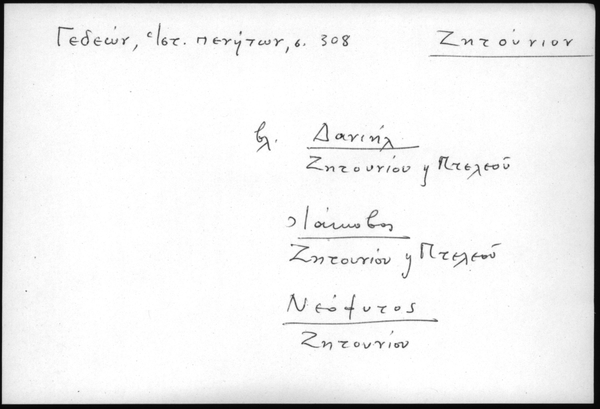 Γεδεών, Ἱστ. πενήτων, σ. 308
Ζητούνιον
βλ. Δανιήλ
Ζητουνίου ἤ Πτελεοῦ
Ἰάκωβος
Ζητουνίου ἤ Πτελεοῦ
Νεόφυτος
Ζητουνίου